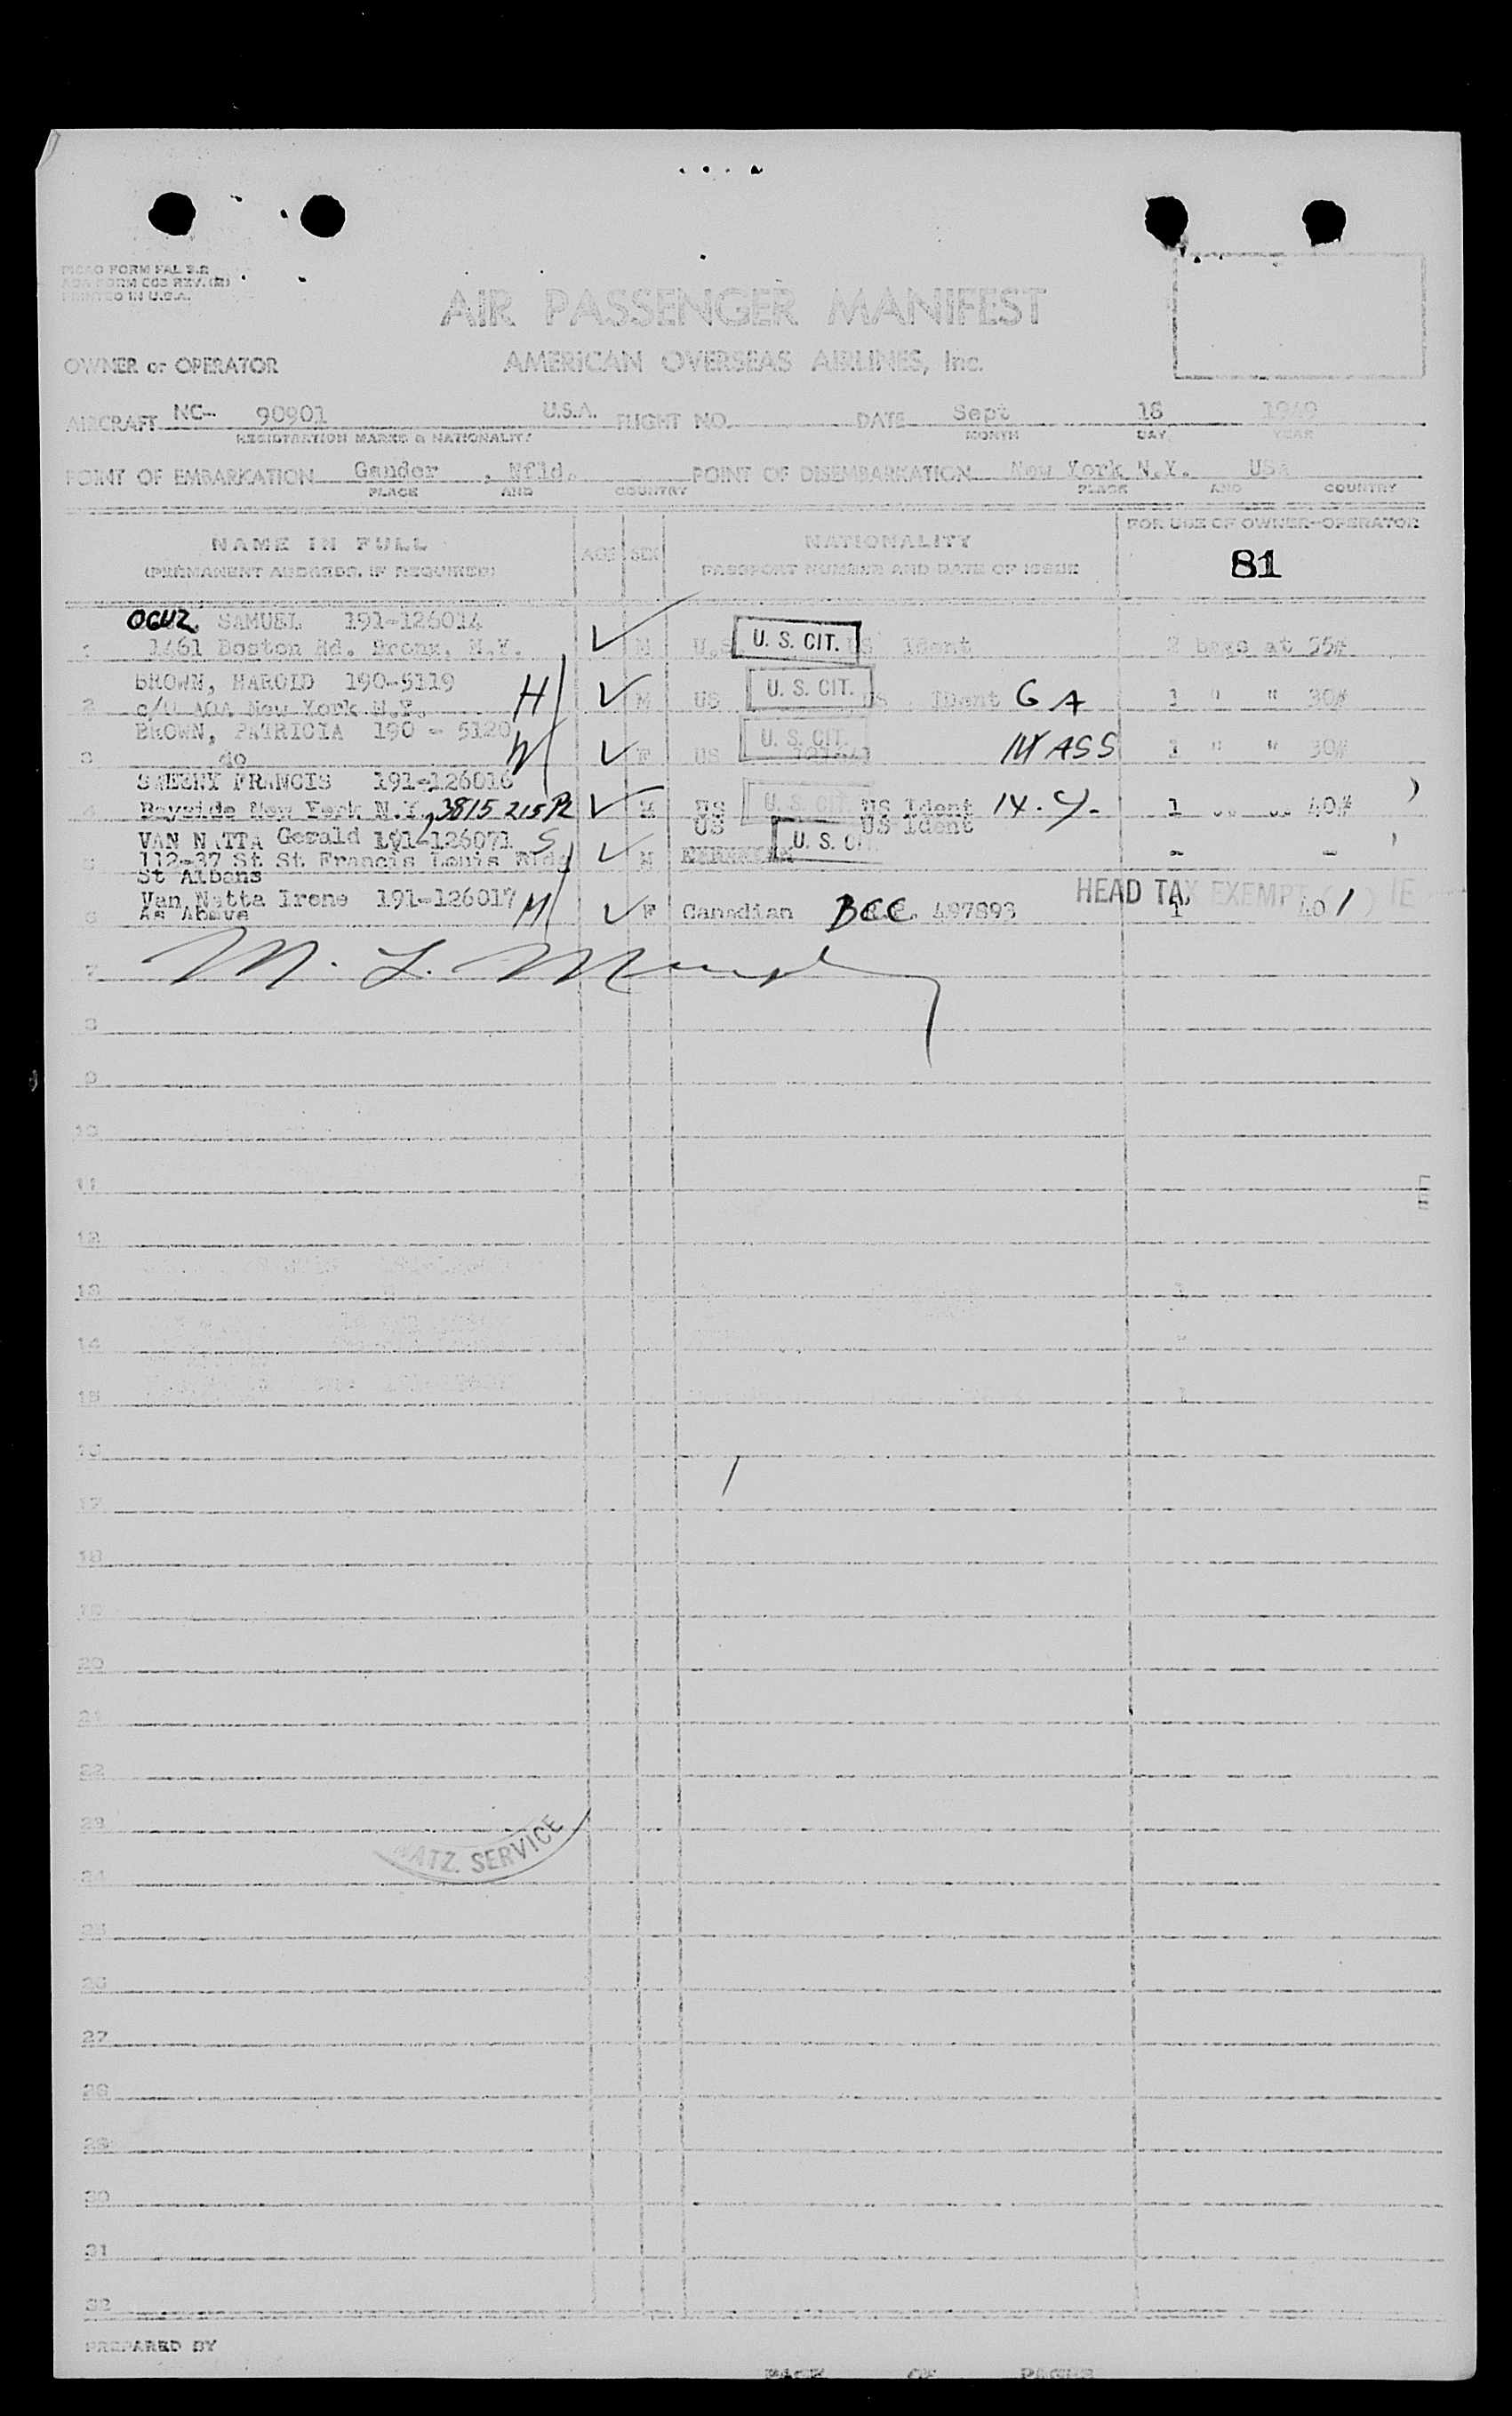 PICAO FORM FAL 2.2
PRINTED IN U.S.A.
AIR PASSENGER MANIFEST
OWNER or OPERATOR AMERICAN OVERSEAS AIRLINES, Inc.
AIRCRAFT NC- 90901 U.S.A. FLIGHT NO. DATE Sept 18 1949
REGISTRATION MARKS & NATIONALITY MONTH DAY YEAR
POINT OF EMBARKATION Gander , Nfld. POINT OF DISEMBARKATION New York N.Y. USA
PLACE AND COUNTRY PLACE AND COUNTRY
NAME IN FULL AGE SEX NATIONALITY FOR USE OF OWNER-OPERATOR
(PERMANENT ADDRESS, IF REQUIRED) PASSPORT NUMBER AND DATE OF ISSUE 81
OGUZ, SAMUEL 191-126014
1 1461 Boston Rd. Bronx, N.Y. M U.S. U. S. CIT. US Ident 2 bags at 55#
BROWN, HAROLD 190-5119 H
2 c/o AOA New York N.Y. M US U. S. CIT. US Ident GA 1 " " 30#
BROWN, PATRICIA 190 - 5120 W
3 do F US U. S. CIT. MASS 1 " " 30#
SHEEHY FRANCIS 191-126016
4 Bayside New York N.Y. 3815 215 Pl M US U. S. CIT. US Ident N.Y. 1 " " 40#
VAN NATTA Gerald 191-126071 S US US Ident
5 112-37 St St Francis Louis Bldg M U. S. CIT. - -
St Albans
Van Natta Irene 191-126017 M HEAD TAX EXEMPT
6 As Above F Canadian BCC 497893 1 40
M. L. Murphy
7
8
9
10
11
12
13
14
15
16
17
18
19
20
21
22
23
NATZ. SERVICE
24
25
26
27
28
29
30
31
32
PREPARED BY
PAGE OF PAGES